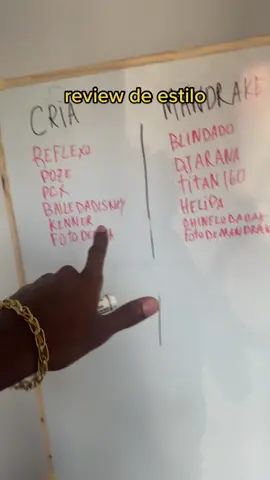 review de estilo
CRIA
REFLEXO
POZE
PCX
BAILE DA DISNEY
KENNER
FOTO DE
MANDRAKE
BLINDADO
DJ ARANA
TITAN 160
HELIPA
CHINELO DA
FOTO DE MANDRAK